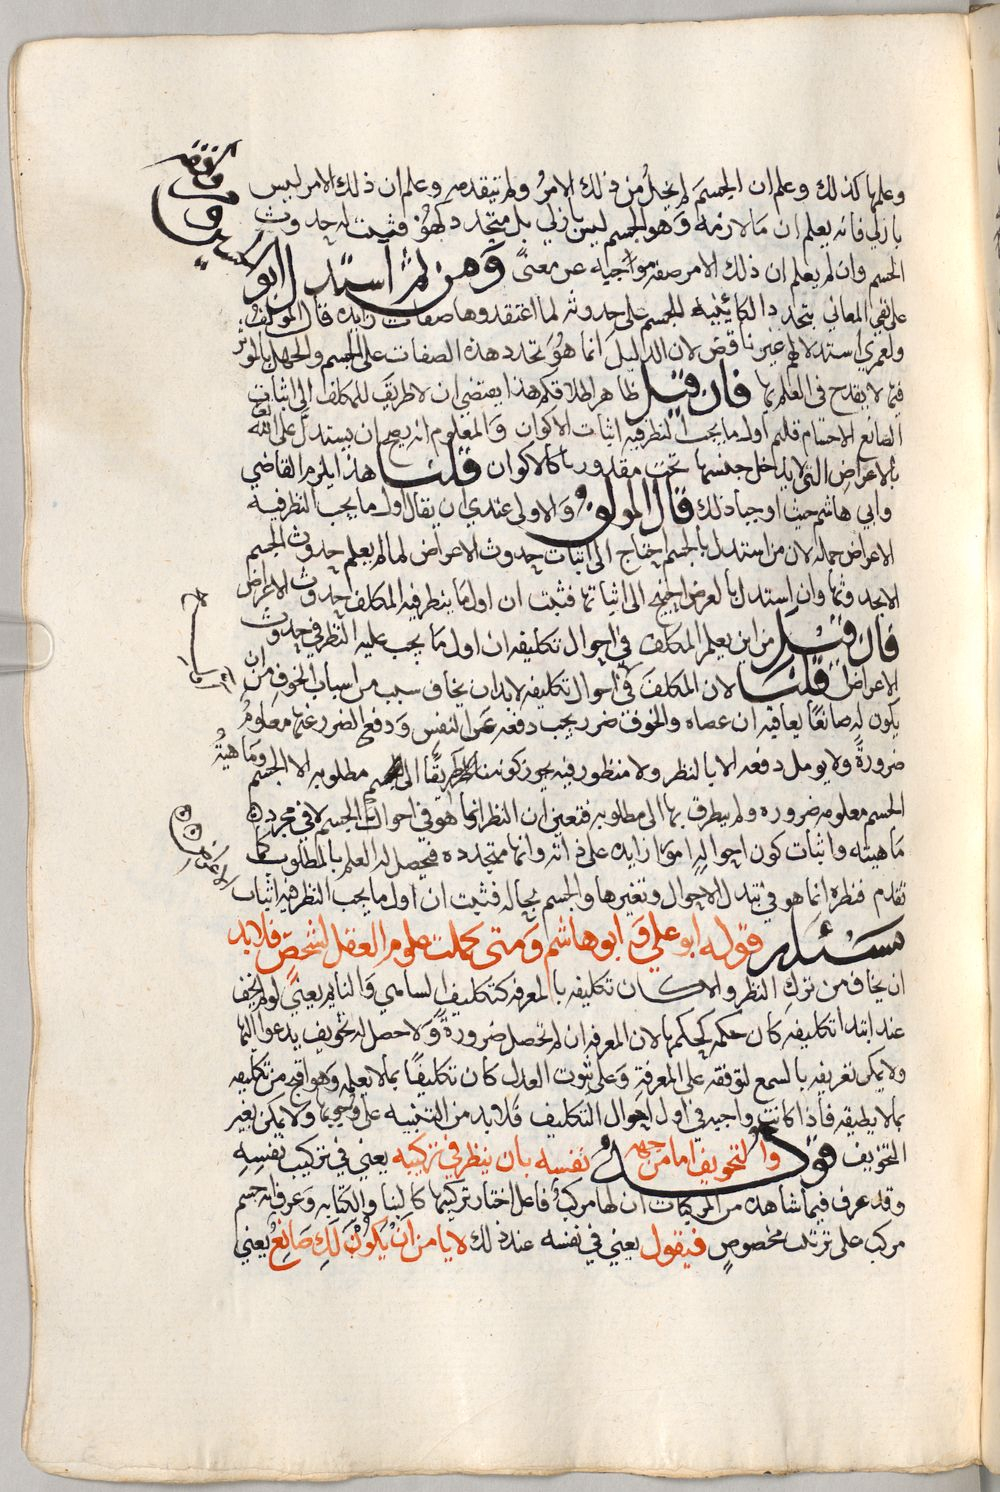 وعلمها كذلك وعلم ان الجسم لم يخلُ من ذلك الامرُ ولم تتقدمه وعلم ان ذلك الامر ليس
بازلي فانه يعلم ان ما لازمه وهو الجسم ليس بازلي بل متجدد كهُوَ فثبت له حدوث
الجسم وان لم يعلم ان ذلك الامر صفه مواجبه عن معنىً وَمن ثمّ استدل ابو
الحسين وموافقوه
على نفي المعاني بتجدد الكائنيه للجسم على حدوثه لما اعتقدوها صفات زايده قال المولفُ
ولعمري استدلالهم غير ناقص لان الدليل انما هُوَ تجدد هذه الصفات على الجسم والجهل بالموثر
فيها لا يقدح في العلم بها فان قيل ظاهر اطلاقكم هذا يقتضي ان لا طريق للمكلف الى اثبات
الصانع الا الاجسام قلتم اول ما يجب النظر فيه اثبات الاكوان وَالمعلوم انه يصح ان يستدل على الله تعالى
بالاعراض التي لا يدخل جنسها تحت مقدورنا كالاكوان قلنا هذا يلزم القاضي
وابي هاشم حيث اوجبا ذلك قال المولف والاولى عندي ان يقال اول ما يجب النظر فيه
الاعراض جمله لان من استدل بالجسم احتاج الى اثبات حدوث الاعراض لما لم يعلم حدوث الجسم
الا بحدوثها وان استدل بالعرض احتيج الى اثباتها فثبت ان اول ما ينظر فيه المكلف حدوث الاعراض
فان قيل من اين يعلم المكلف في احوال تكليفه ان اول ما يجب عليه النظر في حدوث
الاعراض قلنا لان المكلف في احوال تكليفه لا بد ان يخاف سبب من اسباب الخوف من ان
يكون له صانعًا يعاقبه ان عصاه والخوف ضرر يجب دفعه عن النفس وَدفع الضرر عنها معلومُ
ضرورةً ولا يومل دفعه الا بالنظر ولا منظور فيه يجوز كونه طريقًا الى مطلوبه الا الجسم وَمَاهيّةُ
الجسم معلومه ضروره ولم يتطرق بها الى مطلوبه فتعين ان النظر انما هو في احوال الجسم لا في مجرد
ماهيته واثبات كون احواله امورًا زايده على ذاته وانها متجدده فيحصل له العلم بالمطلوب كما
تقدم فنظره انما هو في تبدل الاحوال وتغيرها والجسم بحاله فثبت ان اول ما يجب النظر فيه اثبات
الاعراض
مسئله قوله ابو علي وَ ابو هاشم وَمتى كملت علوم العقل لشخصٍ فلا بد
ان يخاف من ترك النظر والا كان تكليفه بالمعرفه كتكليف الساهي وَالنايم يعني لو لم يخف
عند ابتدا تكليفه كان حكمه كحكمهما لان المعرفه ان لم تحصل ضرورةً وَلا حصل له تخويف يدعوا اليها
ولا يمكن تعريفه بالسمع لتوقفه على المعرفة وَعلى ثبوت العدل كان تكليفًا بما لا يعلم وهو اقبح من تكليفه
بما لا يطيقه فاذا كانت واجبه في اول احوال التكليف فلا بد من التنبيه على وجوبها ولا يمكن بغير
التخويف قوله والتخويف اما من جهه نفسه بان ينظر في تركيبه يعني في تركيب نفسِهِ
وقد عرف فيما شاهده من المركبات ان لها مركبٌ فاعل اختار تركيبها كالبنا والكتابه وَعرف انه جسم
مركب على ترتيب مخصوصٍ فيقول يعني في نفسه عند ذلك لا يا من اَنْ يَكوُنَ لَكِ صَانِعٌ يعني